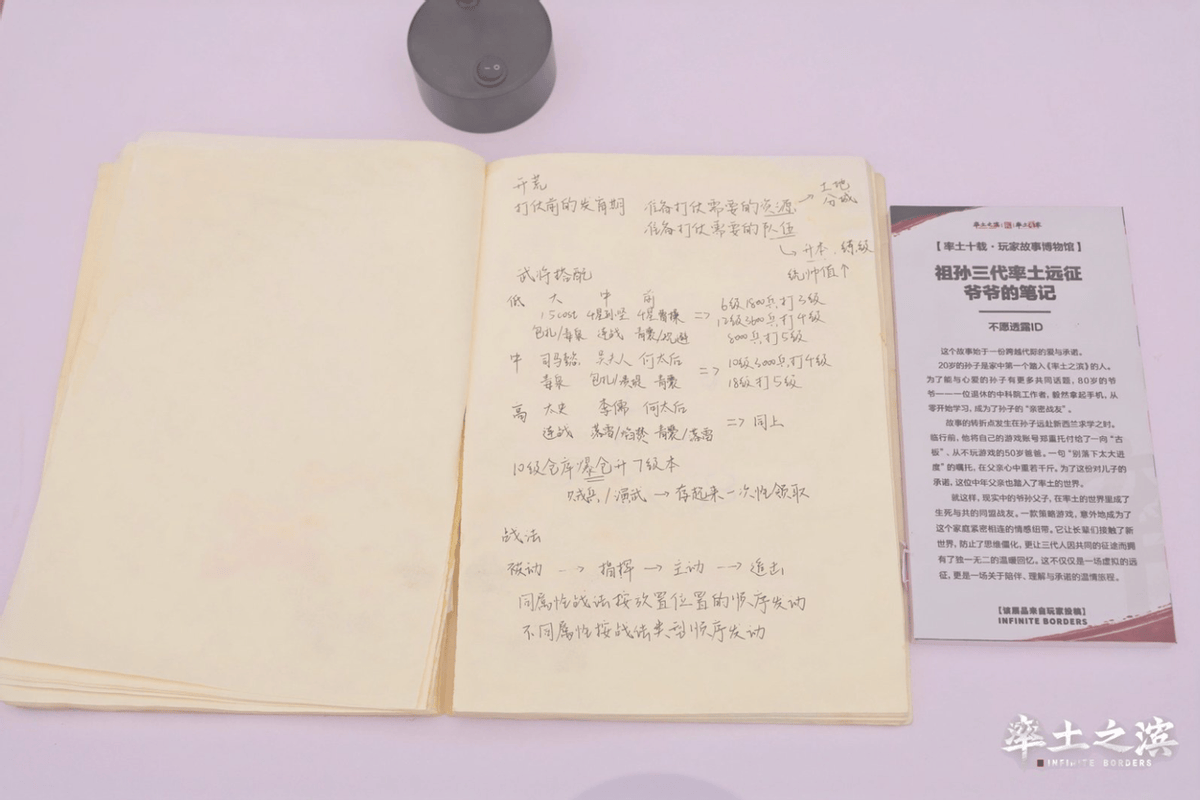 开荒
打仗前的发育期 准备打仗需要的资源 → 土地 分城
准备打仗需要的队伍
↳ 升本、练级
统帅值↑
武将搭配
低 大 中 前
1.5cost 4星孙坚 4星曹操 => 6级1800兵打3级
12级3600兵打4级
包扎/毒泉 连战 青囊/ 8000兵打5级
中 司马懿 吴夫人 何太后 => 10级3000兵打4级
毒泉 包扎/ 青囊 18级打5级
高 太史 李儒 何太后 => 同上
连战 落雷/焰焚 青囊/落雷
10级仓库爆仓升7级本
贼兵/演武 → 存起来一次性领取
战法
被动 → 指挥 → 主动 → 追击
同属性战法按放置位置的顺序发动
不同属性按战法类型顺序发动
率土之滨
【 率土十载·玩家故事博物馆 】
祖孙三代率土远征
爷爷的笔记
不愿透露ID
这个故事始于一份跨越代际的爱与承诺。
20岁的孙子是家中第一个踏入《率土之滨》的人。
为了能与心爱的孙子有更多共同话题，80岁的爷
爷——一位退休的中科院工作者，毅然拿起手机，从
零开始学习，成为了孙子的“亲密战友”。
故事的转折点发生在孙子远赴新西兰求学之时。
临行前，他将自己的游戏账号郑重托付给了一向“古
板”、从不玩游戏的50岁爸爸。一句“别落下太大进
度”的嘱托，在父亲心中重若千斤。为了这份对儿子的
承诺，这位中年父亲也踏入了率土的世界。
就这样，现实中的爷孙父子，在率土的世界里成了
生死与共的同盟战友。一款策略游戏，意外地成为了
这个家庭紧密相连的情感纽带。它让长辈们接触了新
世界，防止了思维僵化，更让三代人因共同的征途而拥
有了独一无二的温暖回忆。这不仅仅是一场虚拟的远
征，更是一场关于陪伴、理解与承诺的温情旅程。
【该展品来自玩家投稿】
INFINITE BORDERS
率土之滨
INFINITE BORDERS